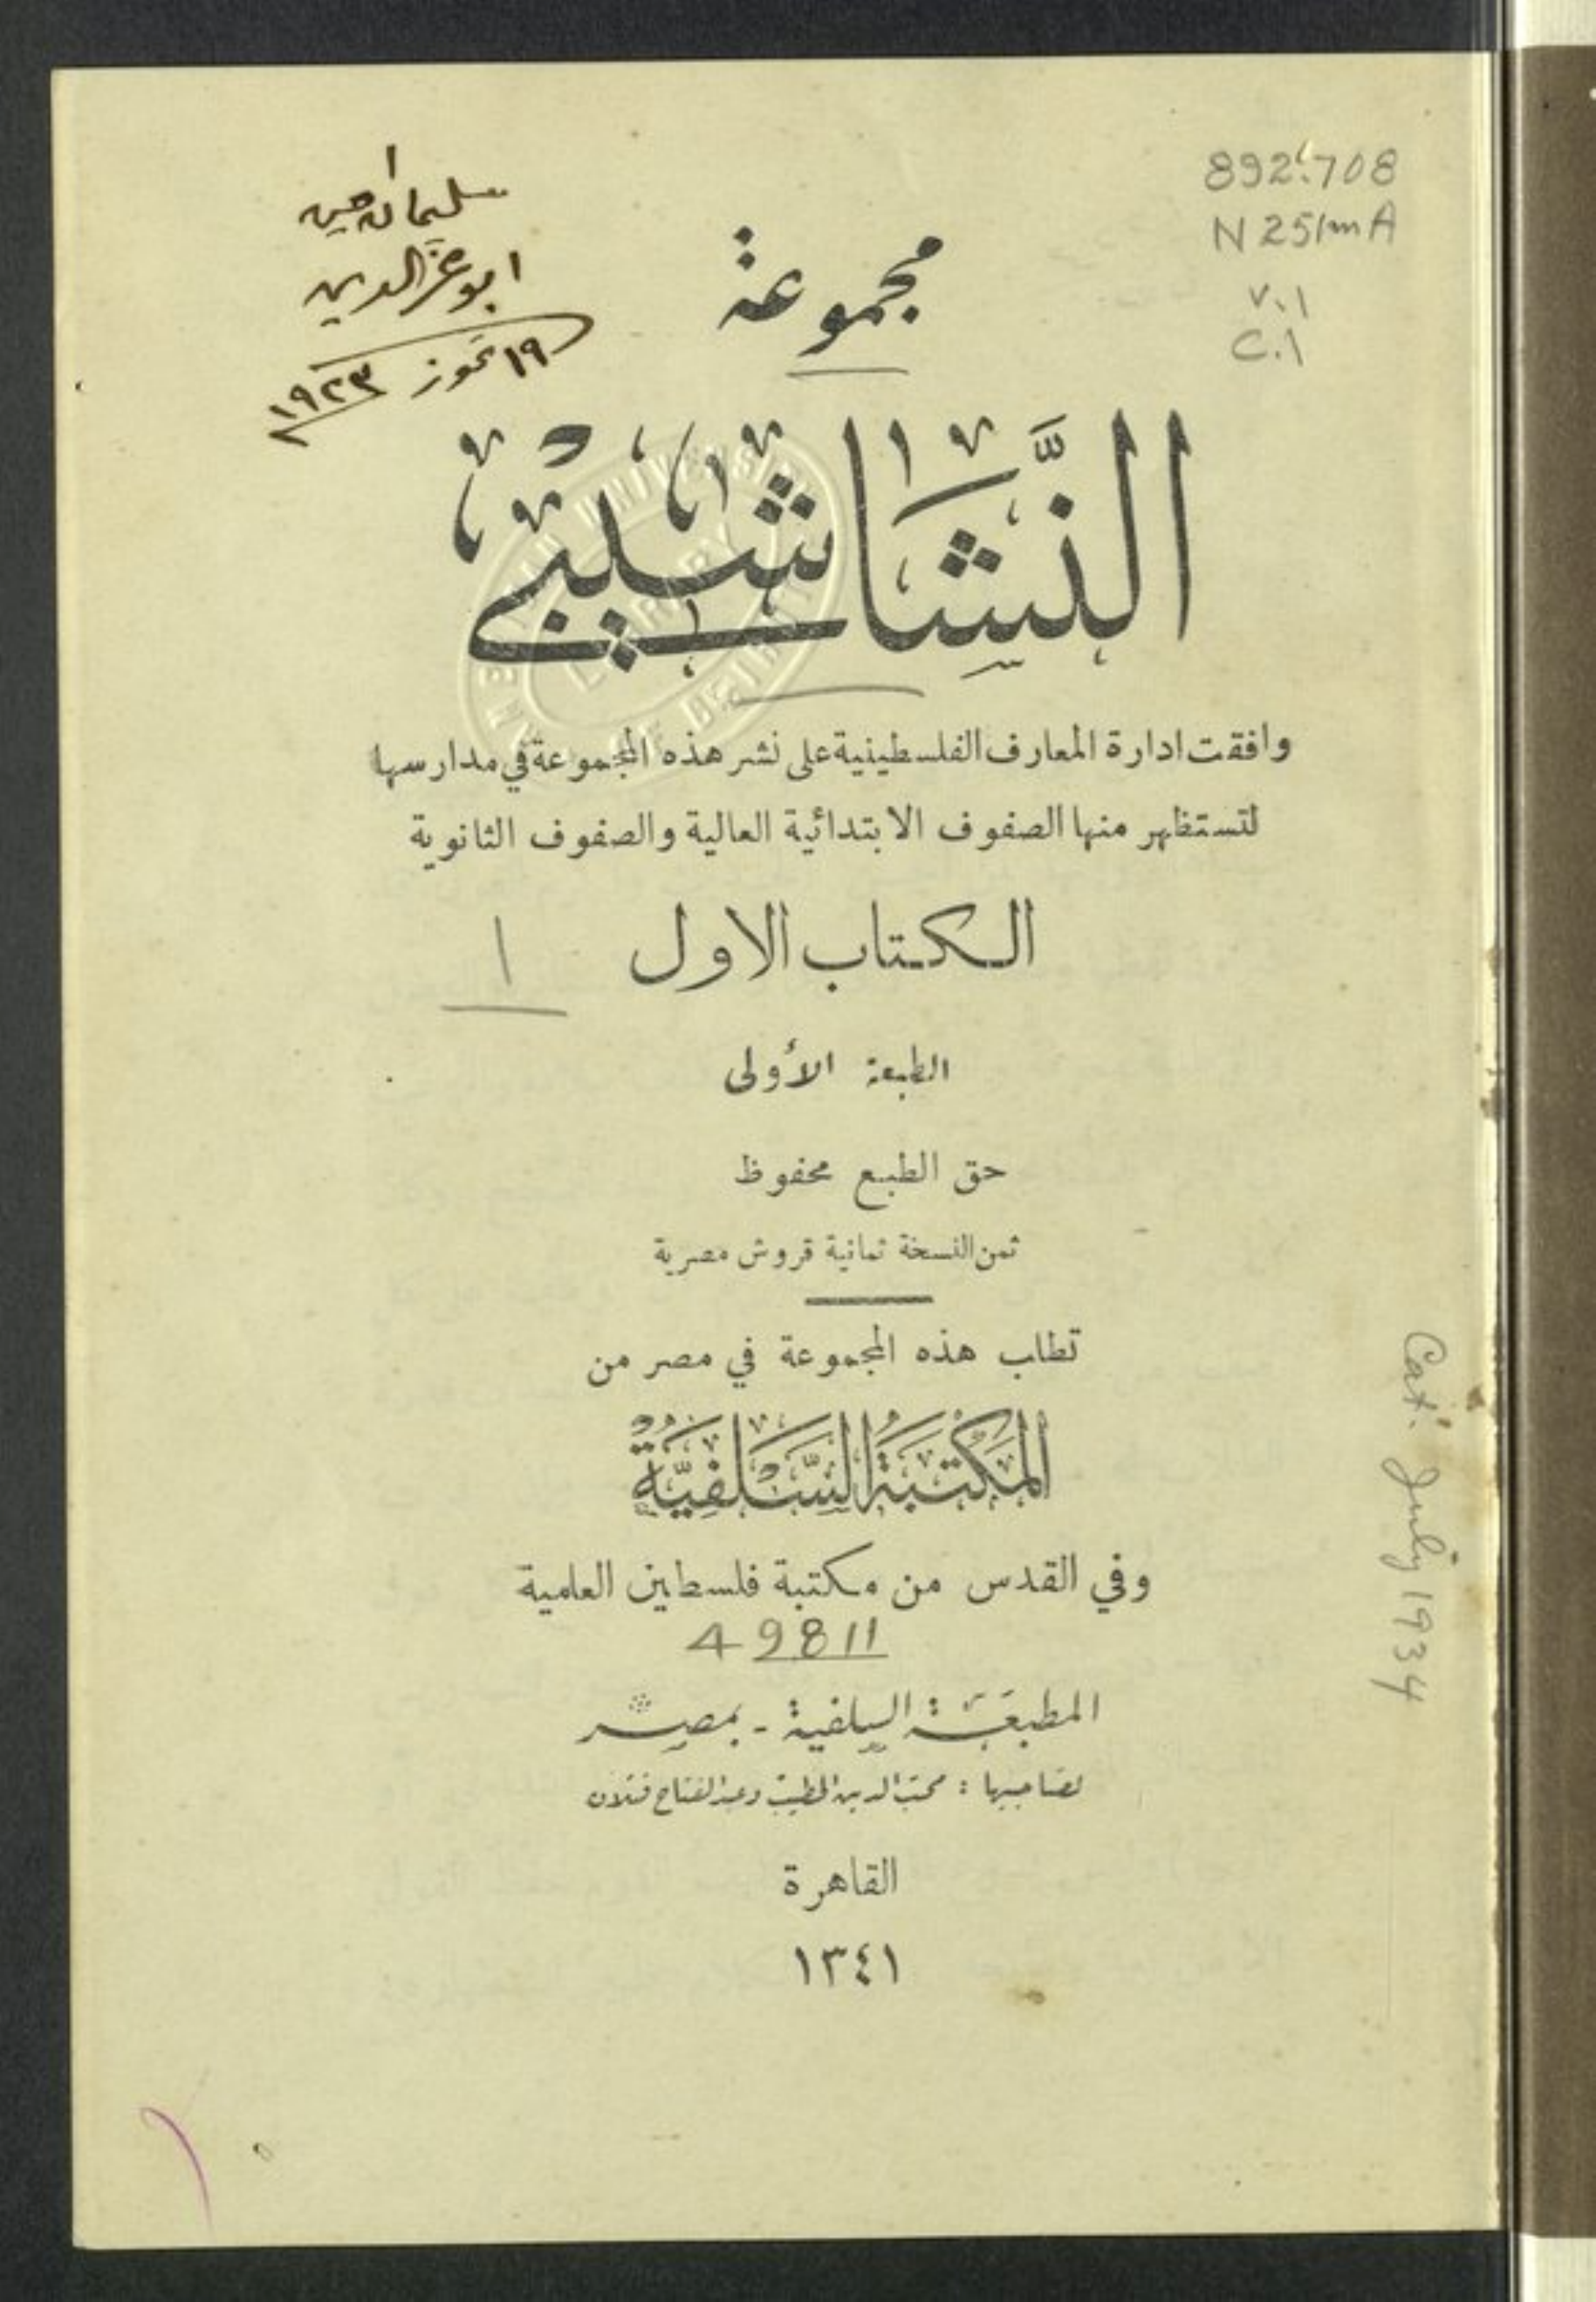 892.708
N251mA
v.1
c.1
١
سليمان
ابو عز الدين
١٩ تموز ١٩٢٣
مجموعة
النَّشَاشيبي
وافقت ادارة المعارف الفلسطينية على نشر هذه المجموعة في مدارسها
لتستظهر منها الصفوف الابتدائية العالية والصفوف الثانوية
الكتاب الاول
١
الطبعة الأولى
حق الطبع محفوظ
ثمن النسخة ثمانية قروش مصرية
تطلب هذه المجموعة في مصر من
المَكْتَبَةُ السَّلَفِيَّةُ
وفي القدس من مكتبة فلسطين العلمية
49811
المطبعَة السلفية - بمصر
لصاحبيها : محب الدين الخطيب وعبد الفتاح قتلان
القاهرة
١٣٤١
Cat. July 1934